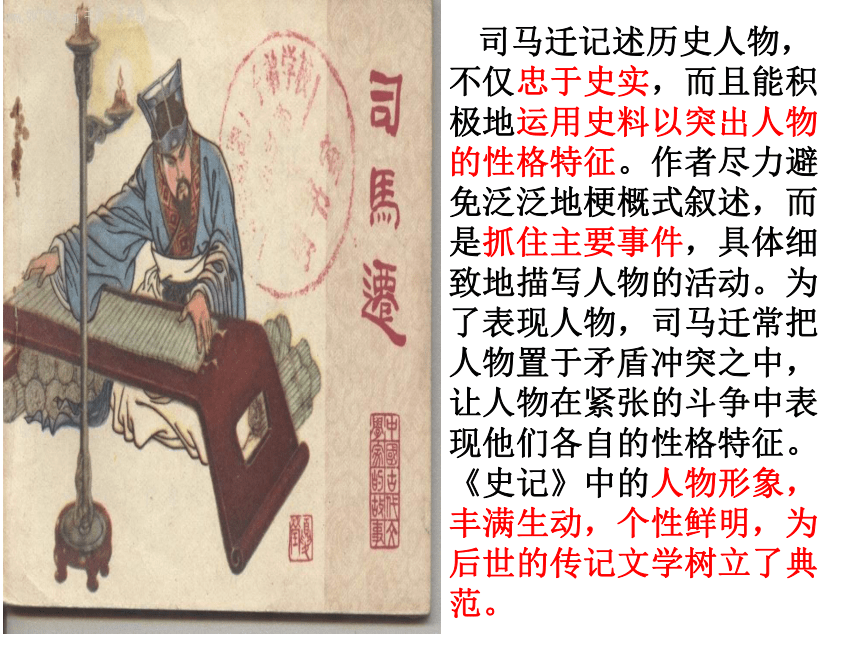 司馬遷
中國古代文
學家的故事
司马迁记述历史人物，
不仅忠于史实，而且能积
极地运用史料以突出人物
的性格特征。作者尽力避
免泛泛地梗概式叙述，而
是抓住主要事件，具体细
致地描写人物的活动。为
了表现人物，司马迁常把
人物置于矛盾冲突之中，
让人物在紧张的斗争中表
现他们各自的性格特征。
《史记》中的人物形象，
丰满生动，个性鲜明，为
后世的传记文学树立了典
范。